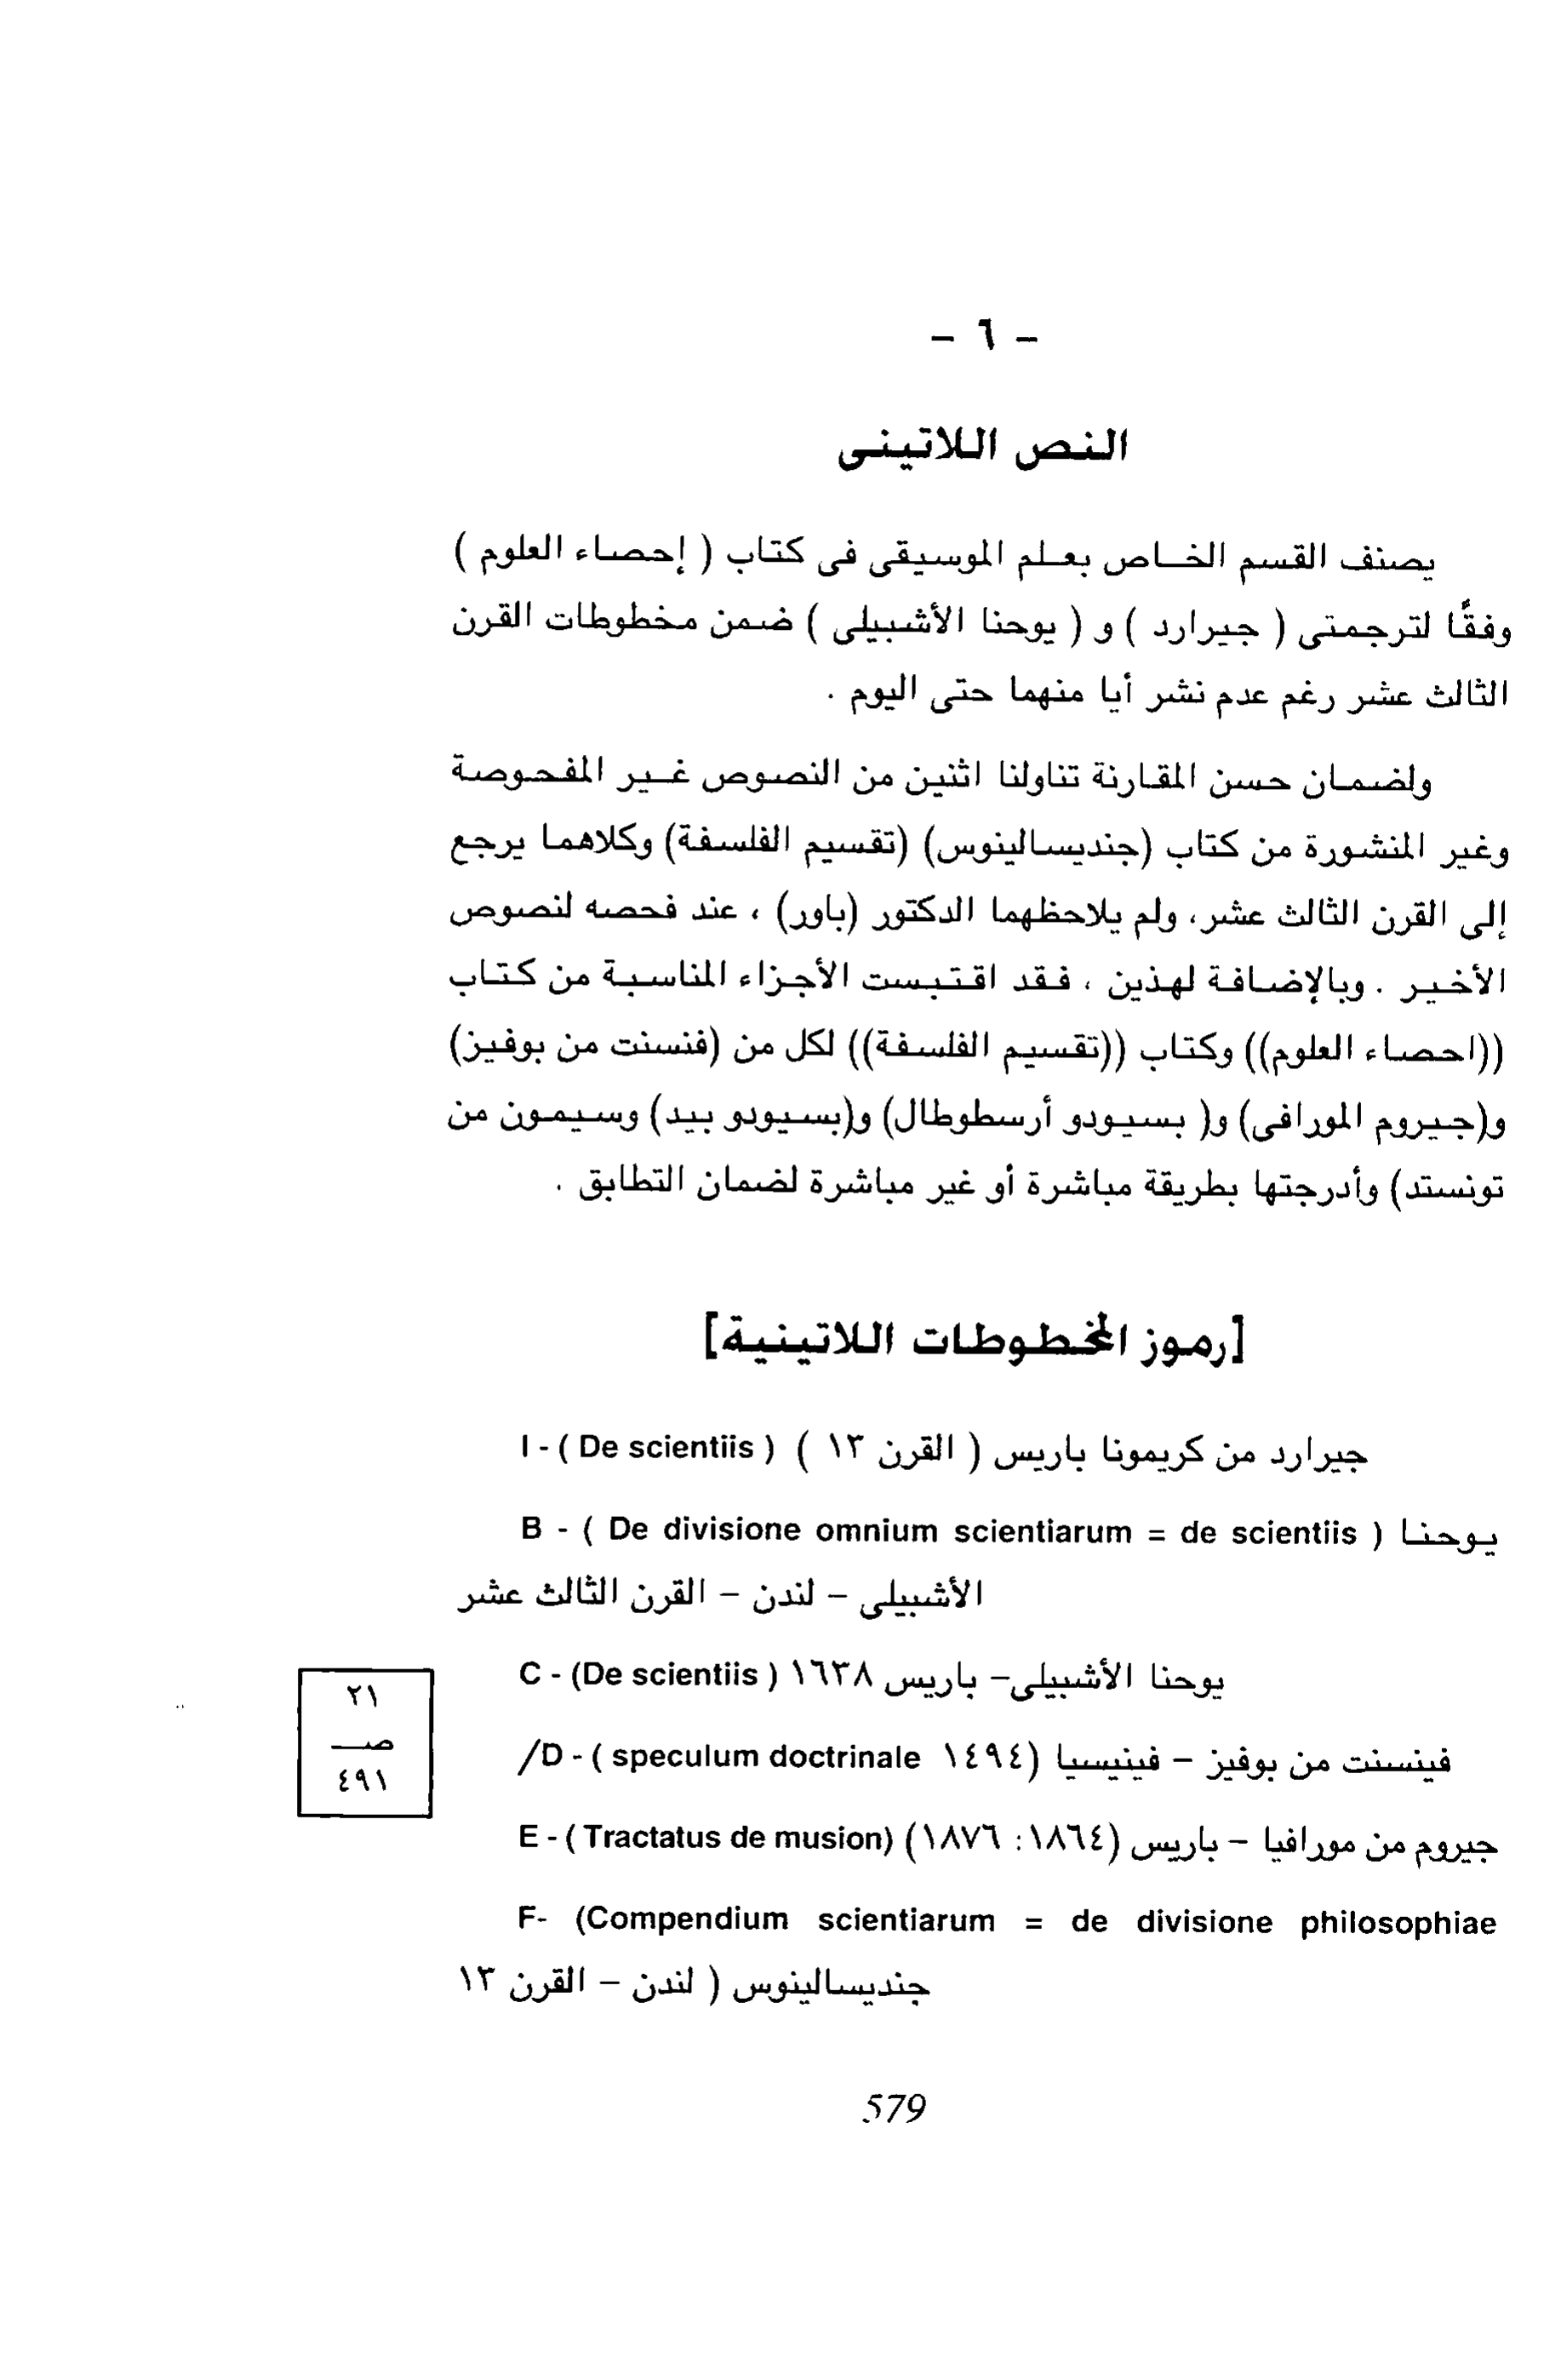 - ٦ -
النص اللاتينى
يصنف القسم الخاص بعلم الموسيقى فى كتاب ( إحصاء العلوم )
وفقًا لترجمتى ( جيرارد ) و ( يوحنا الأشبيلى ) ضمن مخطوطات القرن
الثالث عشر رغم عدم نشر أيا منهما حتى اليوم .
ولضمان حسن المقارنة تناولنا اثنين من النصوص غير المفحوصة
وغير المنشورة من كتاب (جنديسالينوس) (تقسيم الفلسفة) وكلاهما يرجع
إلى القرن الثالث عشر، ولم يلاحظهما الدكتور (باور) ، عند فحصه لنصوص
الأخير . وبالإضافة لهذين ، فقد اقتبست الأجزاء المناسبة من كتاب
((احصاء العلوم)) وكتاب ((تقسيم الفلسفة)) لكل من (فنسنت من بوفيز)
و(جيروم المورافى) و( بسيودو أرسطوطال) و(بسيودو بيد) وسيمون من
تونستد) وأدرجتها بطريقة مباشرة أو غير مباشرة لضمان التطابق .
[رموز المخطوطات اللاتينية]
I - ( De scientiis ) جيرارد من كريمونا باريس ( القرن ١٣ )
B - ( De divisione omnium scientiarum = de scientiis ) يوحنا
الأشبيلى - لندن - القرن الثالث عشر
C - (De scientiis ) يوحنا الأشبيلى- باريس ١٦٣٨
/D - ( speculum doctrinale فينسنت من بوفيز - فينيسيا (١٤٩٤
E - ( Tractatus de musion) جيروم من مورافيا - باريس (١٨٦٤ : ١٨٧٦)
F- (Compendium scientiarum = de divisione philosophiae
جنديسالينوس ( لندن - القرن ١٣
٢١
صـ
٤٩١
579